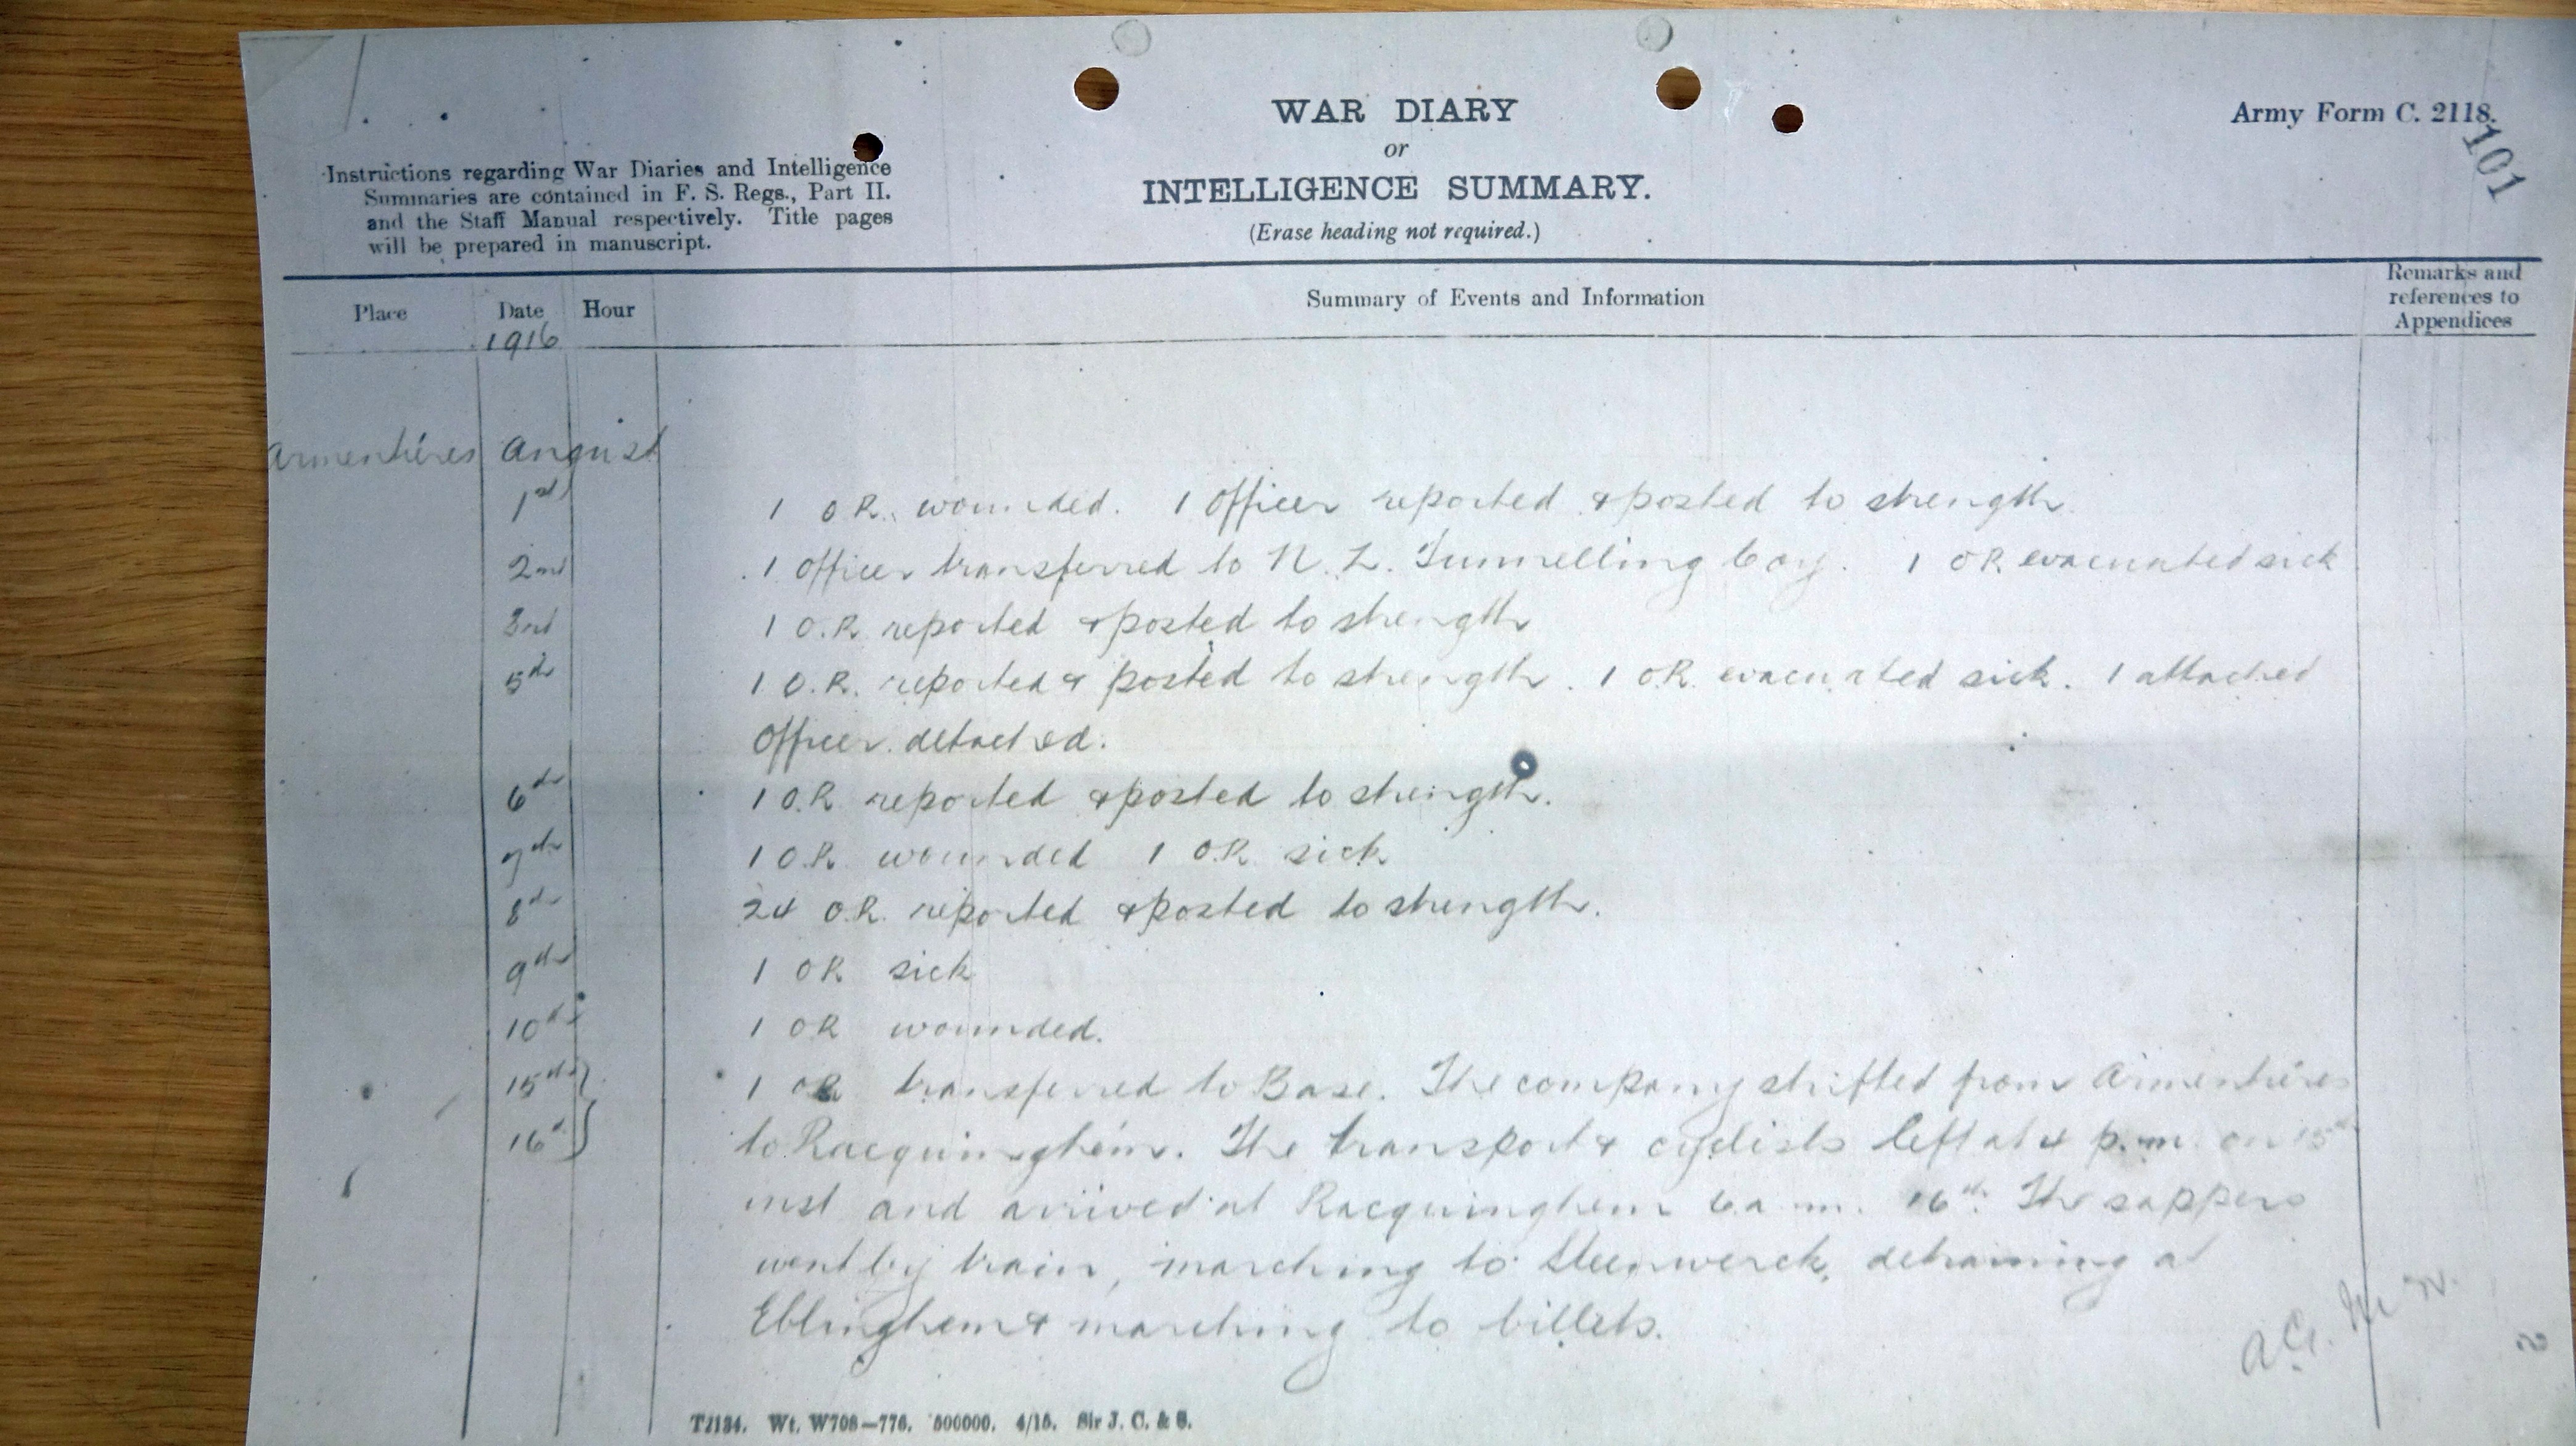 WAR DIARY
or
INTELLIGENCE SUMMARY.
(Erase heading not required.)
Army Form C. 2118.
101
Instructions regarding War Diaries and Intelligence
Summaries are contained in F. S. Regs., Part II.
and the Staff Manual respectively. Title pages
will be prepared in manuscript.
Place Date Hour Summary of Events and Information Remarks and references to Appendices
1916
Armentières August
1st 1 O.R. wounded. 1 Officer reported & posted to strength
2nd 1 Officer transferred to N.Z. Tunnelling Coy. 1 OR evacuated sick
3rd 1 O.R. reported & posted to strength
5th 1 O.R. reported & posted to strength. 1 O.R. evacuated sick. 1 attached
Officer detached.
6th 1 O.R. reported & posted to strength.
7th 1 O.R. wounded 1 O.R. sick
8th 24 O.R. reported & posted to strength.
9th 1 OR sick
10th 1 OR wounded.
15th } 1 OR transferred to Base. The company shifted from Armentières
16th } to Racquinghem. The transport & cyclists left at 4 p.m. on 15th
inst and arrived at Racquinghem 6 a.m. 16th. The sappers
went by train, marching to Steenwerck, detraining at
Ebblinghem & marching to billets.
T2134. Wt. W708—776. 500000. 4/15. Sir J. C. & S.